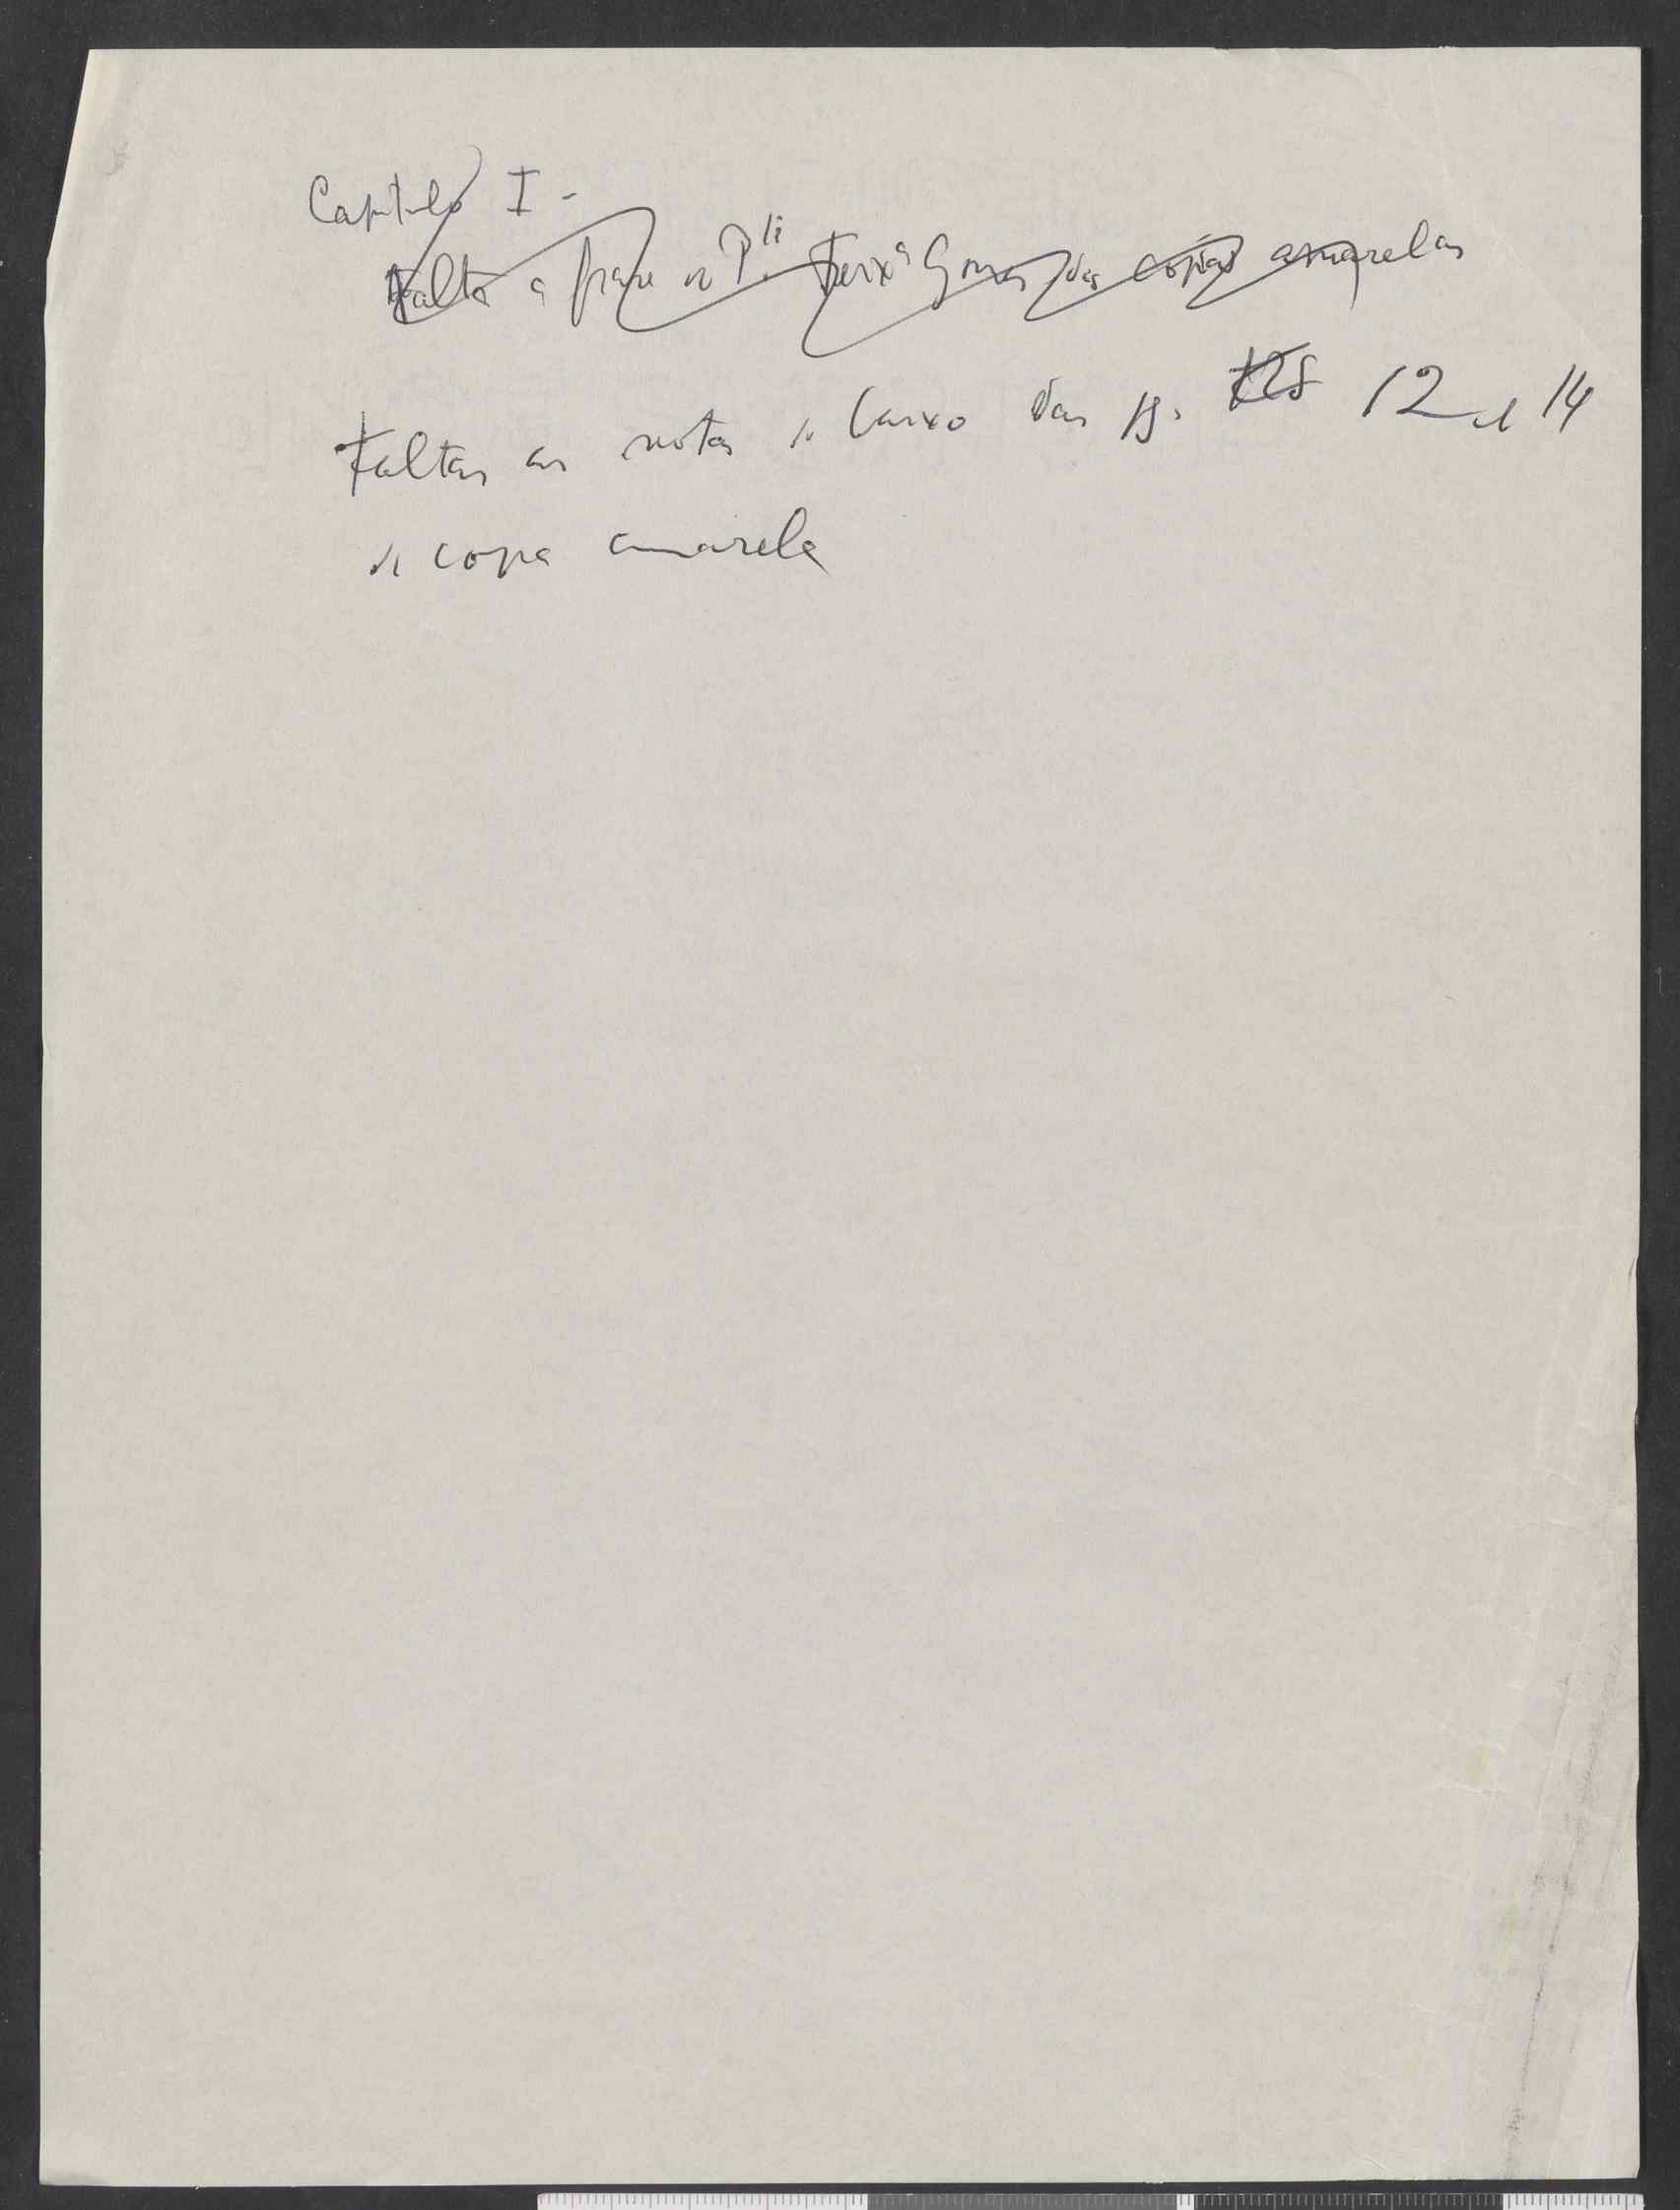 Capitulo I -
Falta a frase do P.te Teixa Gomes das copias amarelas
Faltam as notas de baixo das pg. 12 e 14
da copia amarela